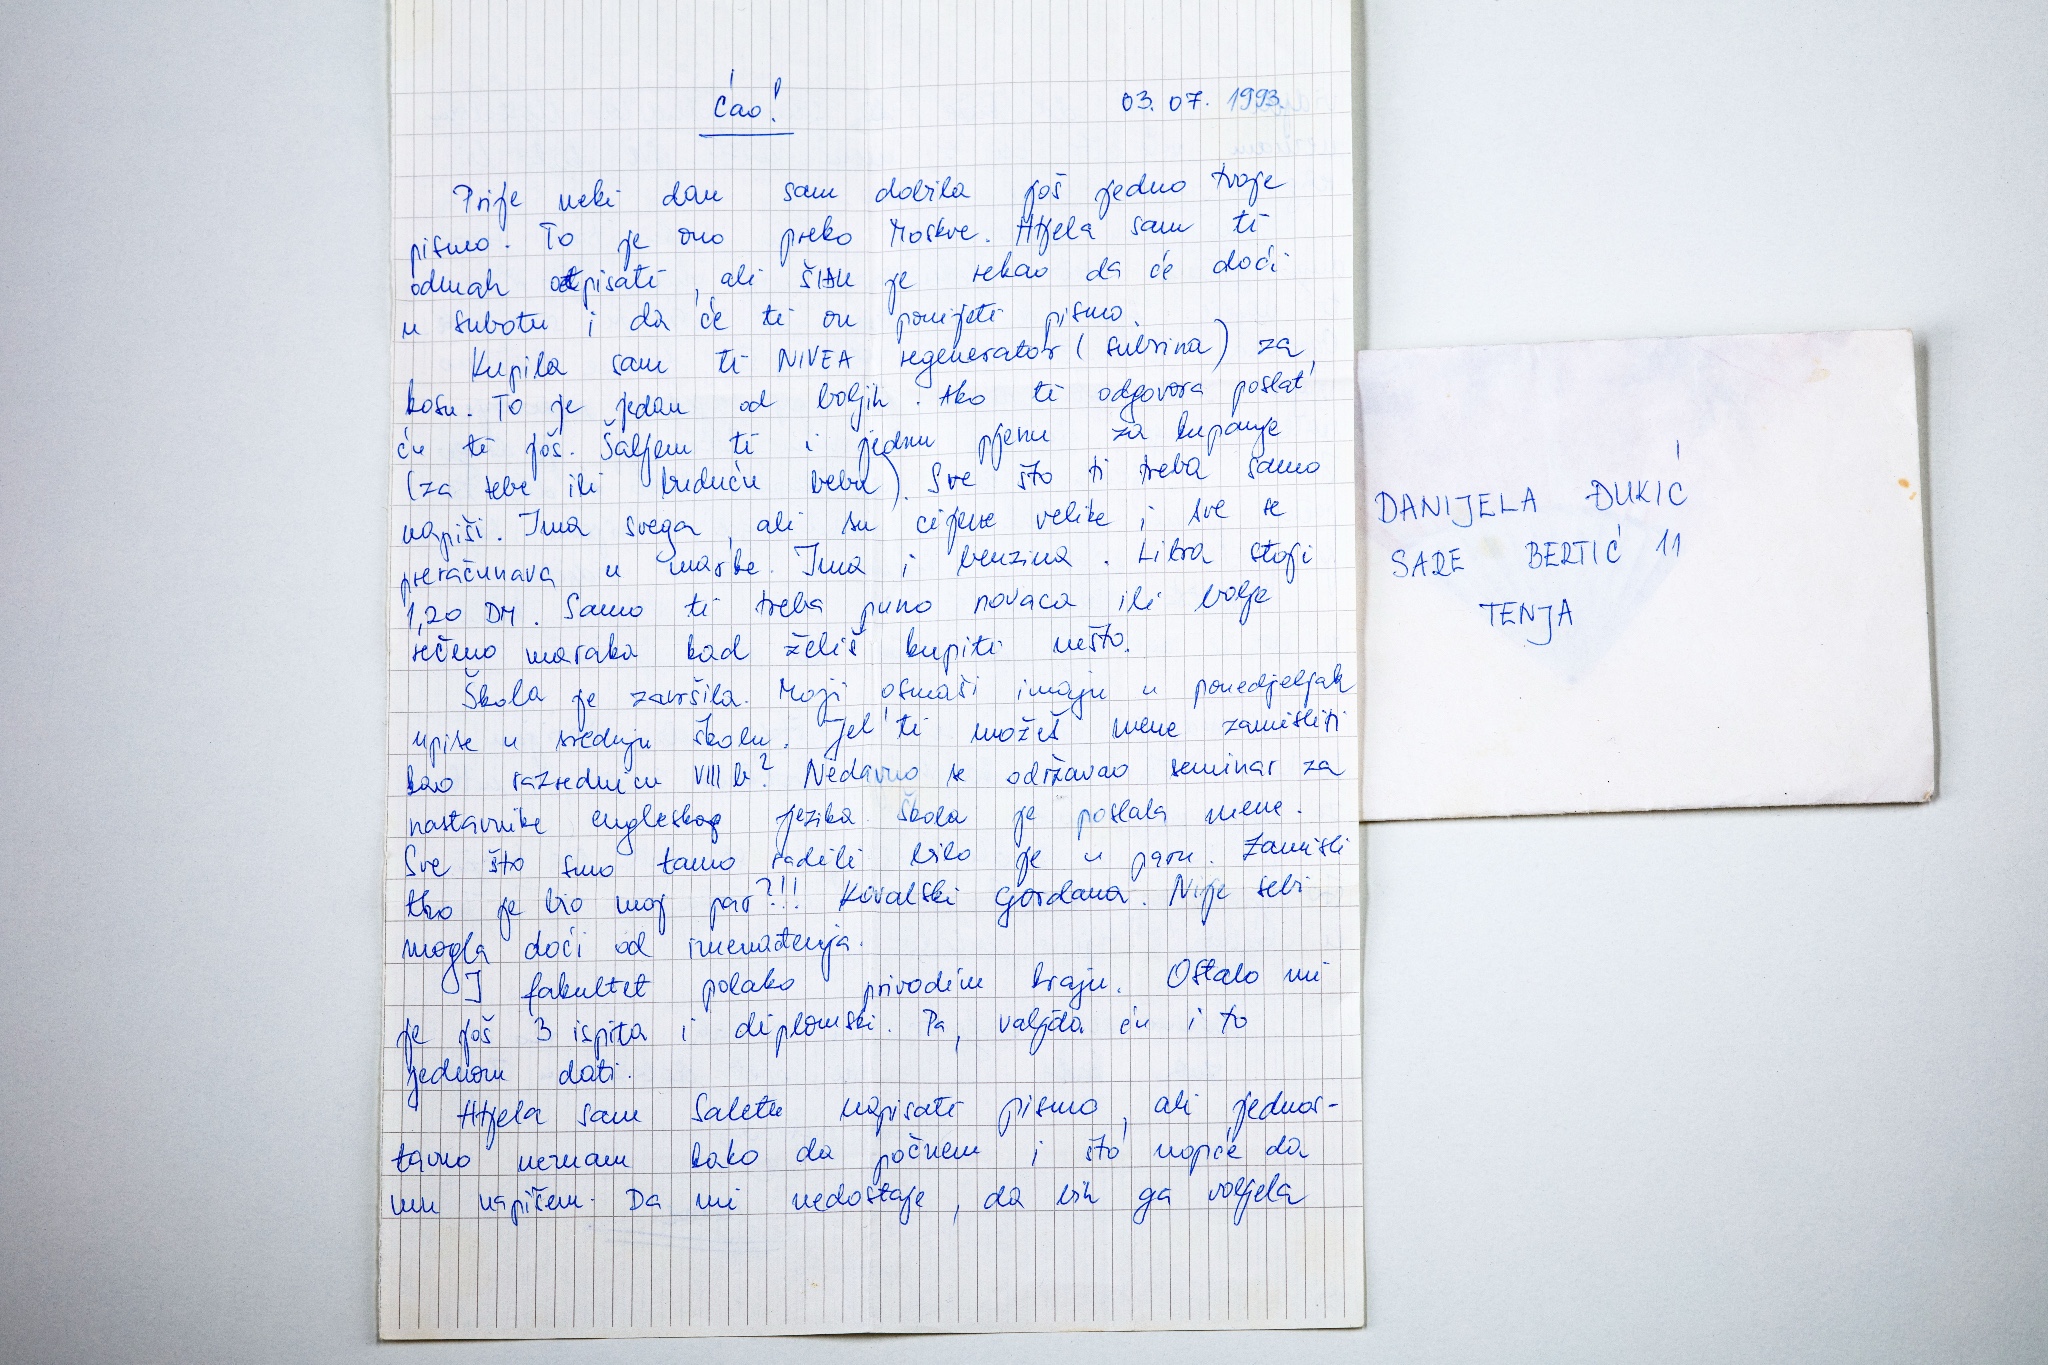 Ćao!
03. 07. 1993.
Prije neki dan sam dobila još jedno tvoje
pismo. To je ono preko Moskve. Htjela sam ti
odmah otpisati, ali je rekao da će doći
u subotu i da će ti on ponijeti pismo.
Kupila sam ti NIVEA regenerator (subrina) za
kosu. To je jedan od boljih. Ako ti odgovora poslat
ću ti još. Šaljem ti i jednu pjenu za kupanje
(za tebe ili buduću bebu). Sve što ti treba samo
napiši. Ima svega, ali su cijene velike i sve se
preračunava u marke. Ima i benzina. Litra stoji
1,20 DM. Samo ti treba puno novaca ili bolje
rečeno maraka kad želiš kupiti nešto.
Škola je završila. Moji osmaši imaju u ponedjeljak
upise u srednju školu. Jel' ti možeš mene zamisliti
kao razrednicu VIII b? Nedavno se održavao seminar za
nastavnike engleskog jezika. Škola je poslala mene.
Sve što smo tamo radili bilo je u paru. Zamisli
tko je bio moj par?!!! Kovalski Gordana. Nije sebi
mogla doći od iznenađenja.
I fakultet polako privodim kraju. Ostalo mi
je još 3 ispita i diplomski. Pa, valjda ću i to
jednom dati.
Htjela sam Saletu napisati pismo, ali jednos-
tavno neznam kako da počnem i što uopće da
mu napišem. Da mi nedostaje, da bih ga voljela
DANIJELA ĐUKIĆ
SARE BERTIĆ 11
TENJA